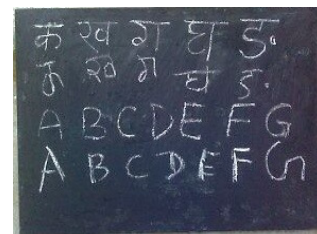 क ख ग घ ङ
क ख ग घ ङ
A B C D E F G
A B C D E F G